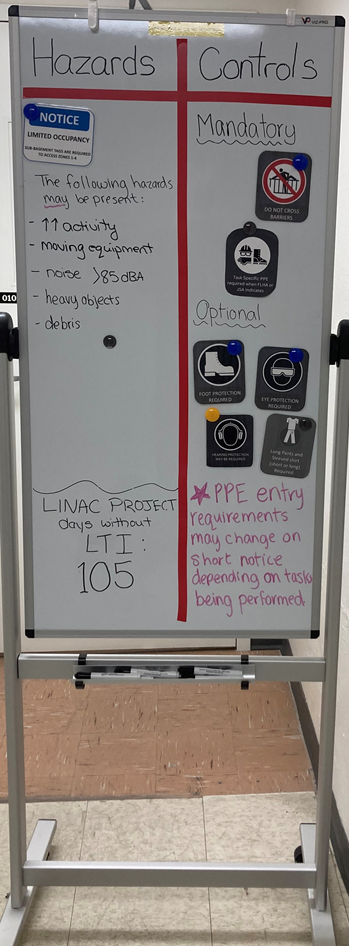 Hazards
Controls
NOTICE
LIMITED OCCUPANCY
SUB-BASEMENT TAGS ARE REQUIRED
TO ACCESS ZONES 1-4
The following hazards
may be present:
- ↑↑ activity
- moving equipment
- noise >85 dBA
- heavy objects
- debris
LINAC PROJECT
days without
LTI:
105
Mandatory
DO NOT CROSS
BARRIERS
Task Specific PPE
required when FLHA or
JSA indicates
Optional
FOOT PROTECTION
REQUIRED
EYE PROTECTION
REQUIRED
HEARING PROTECTION
MAY BE REQUIRED
Long Pants and
Sleeved shirt
(short or long)
Required
★ PPE entry
requirements
may change on
short notice
depending on task
being performed.
010